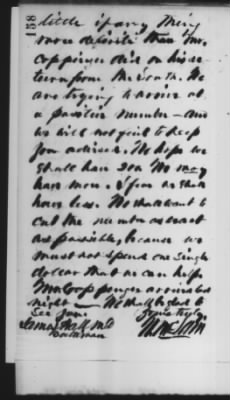 158
little if any thing
more definite than Mr.
Coppinger did on his re
turn from the South. We
are trying to arrive at
a positive number — and
we will not fail to keep
you advised. We hope we
shall have 200. We may
have more. I fear we shall
have less. We shall want to
cut the number as exact
as possible, because we
must not spend one single
dollar that we can help.
Mr. Coppinger arrived last
night — We shall be glad to
see you. Yours truly
James Hall MD
Baltimore